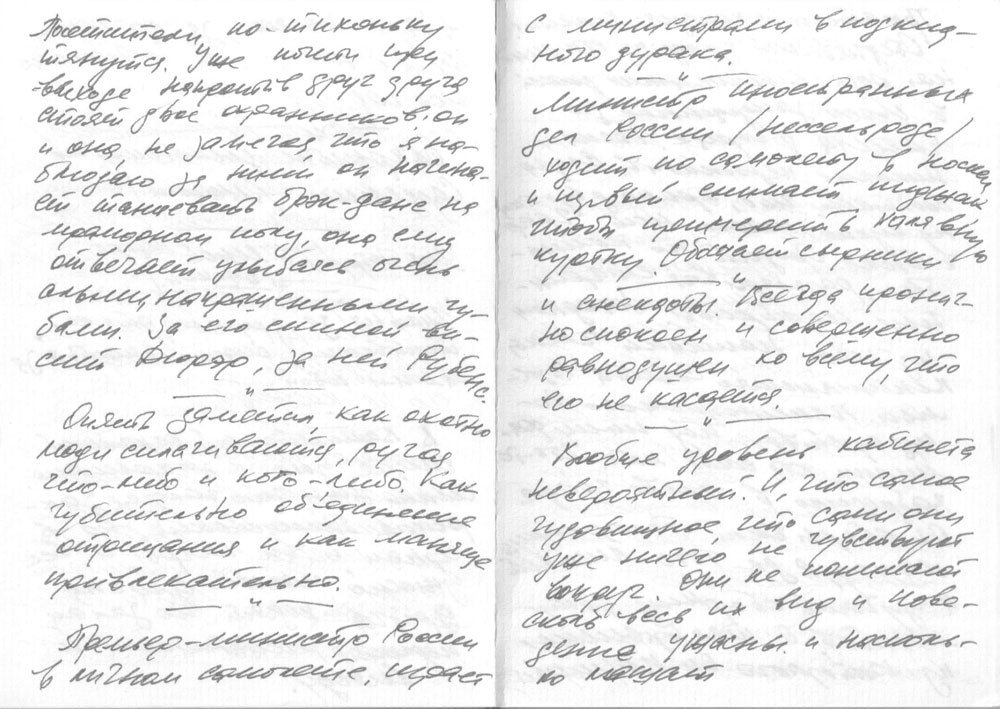 Посетители по-тихоньку
тянутся. Уже почти при
выходе напротив друг друга
стоят двое охранников: он
и она не замечая что я на-
блюдаю за ними он начина-
ет танцевать брэк-данс на
мраморном полу, она ему
отвечает улыбаясь очень
алыми, накрашенными гу-
бами. За его спиной ви-
сит Дюрэр, за ней Рубенс.
— " —
Опять заметил, как охотно
люди сплачиваются, ругая
что-либо и кого-либо. Как
губительно объединение
отрицания и как маняще
привлекательно.
— " —
Премьер-министр России
в личном самолёте играет
с министрами в подкид-
ного дурака.
— " —
Министр иностранных
дел России /Нессельроде/
ходит по самолету в носках
и первый снимает пиджак
чтобы примерить
куртку. Обожает сырники
— " —
и анекдоты. Всегда
спокоен и совершенно
равнодушен ко всему, что
его не касается.
— " —
Вообще уровень кабинета
невероятный. И, что самое
чудовищное, что сами они
уже ничего не чувствуют
вокруг. Они не понимают
весь их вид и пове-
дение ужасны и насколь-
ко